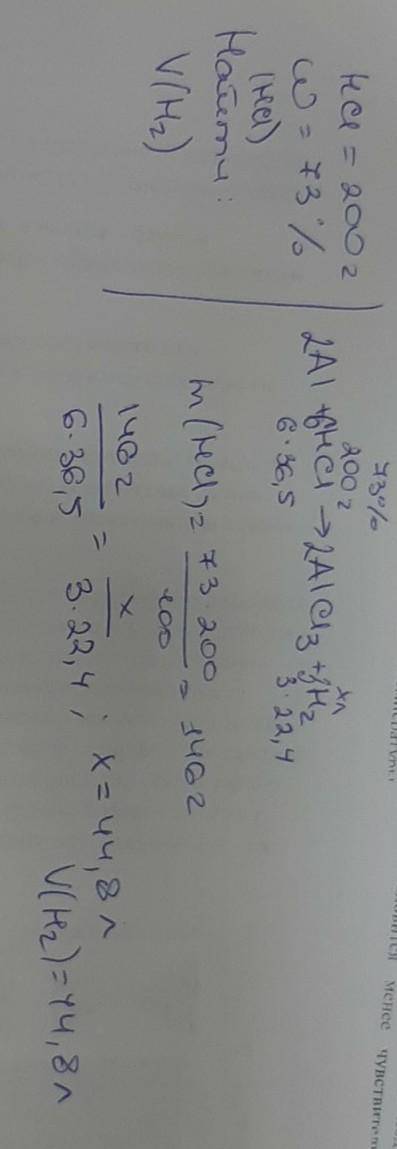 HCl = 200 г
ω = 73 %
(HCl)
Найти:
V(H2)
73%
200 г
xл
2Al + 6HCl → 2AlCl3 + 3H2
6·36,5
3·22,4
m(HCl) = 73·200 / 100 = 146 г
146 г / 6·36,5 = x / 3·22,4 ; x = 44,8 л
V(H2) = 44,8 л
менее чувствител